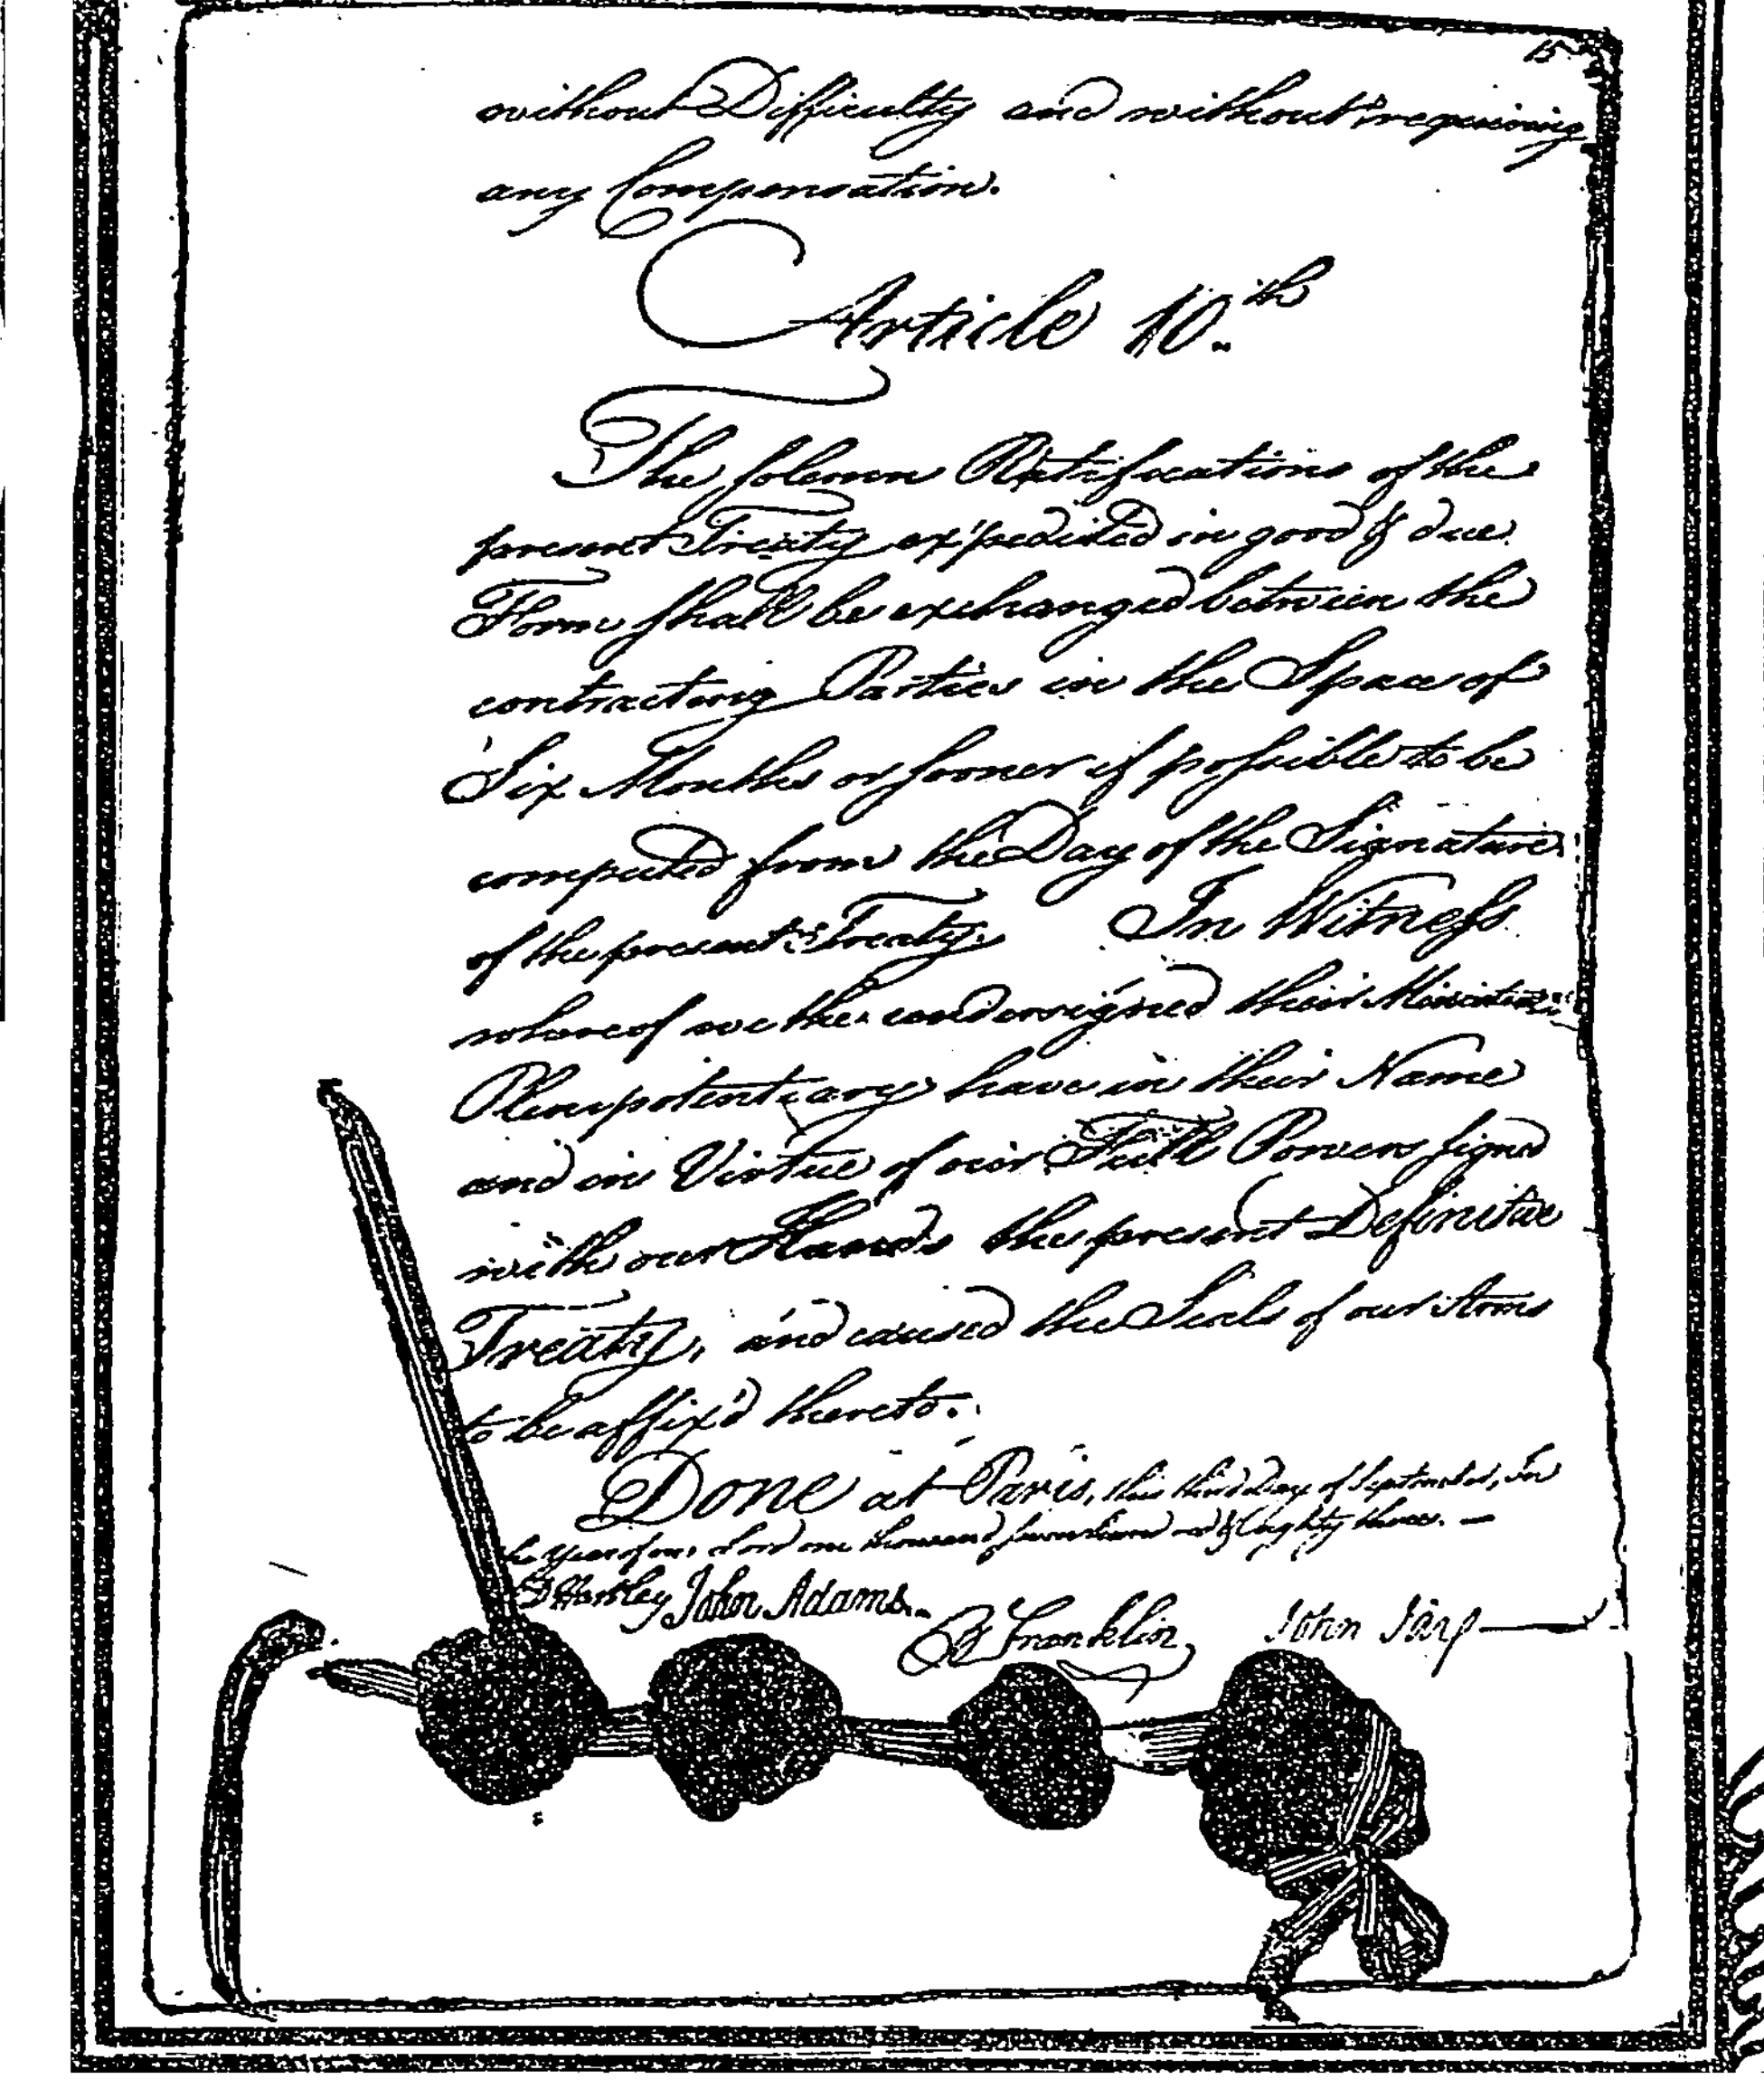 15
without Difficulty and without requiring
any Compensation.
Article 10.th
The solemn Ratifications of the
present Treaty expedited in good & due
Form shall be exchanged between the
contracting Parties in the Space of
Six Months or sooner if possible to be
computed from the Day of the Signature
of the present Treaty. In Witness
whereof we the undersigned their Ministers
Plenipotentiary have in their Name
and in Virtue of our Full Powers signed
with our Hands the present Definitive
Treaty, and caused the Seals of our Arms
to be affix'd thereto.
Done at Paris, this third Day of September, In
the Year of our Lord one thousand seven hundred & Eighty three.
D Hartley John Adams.
B Franklin John Jay